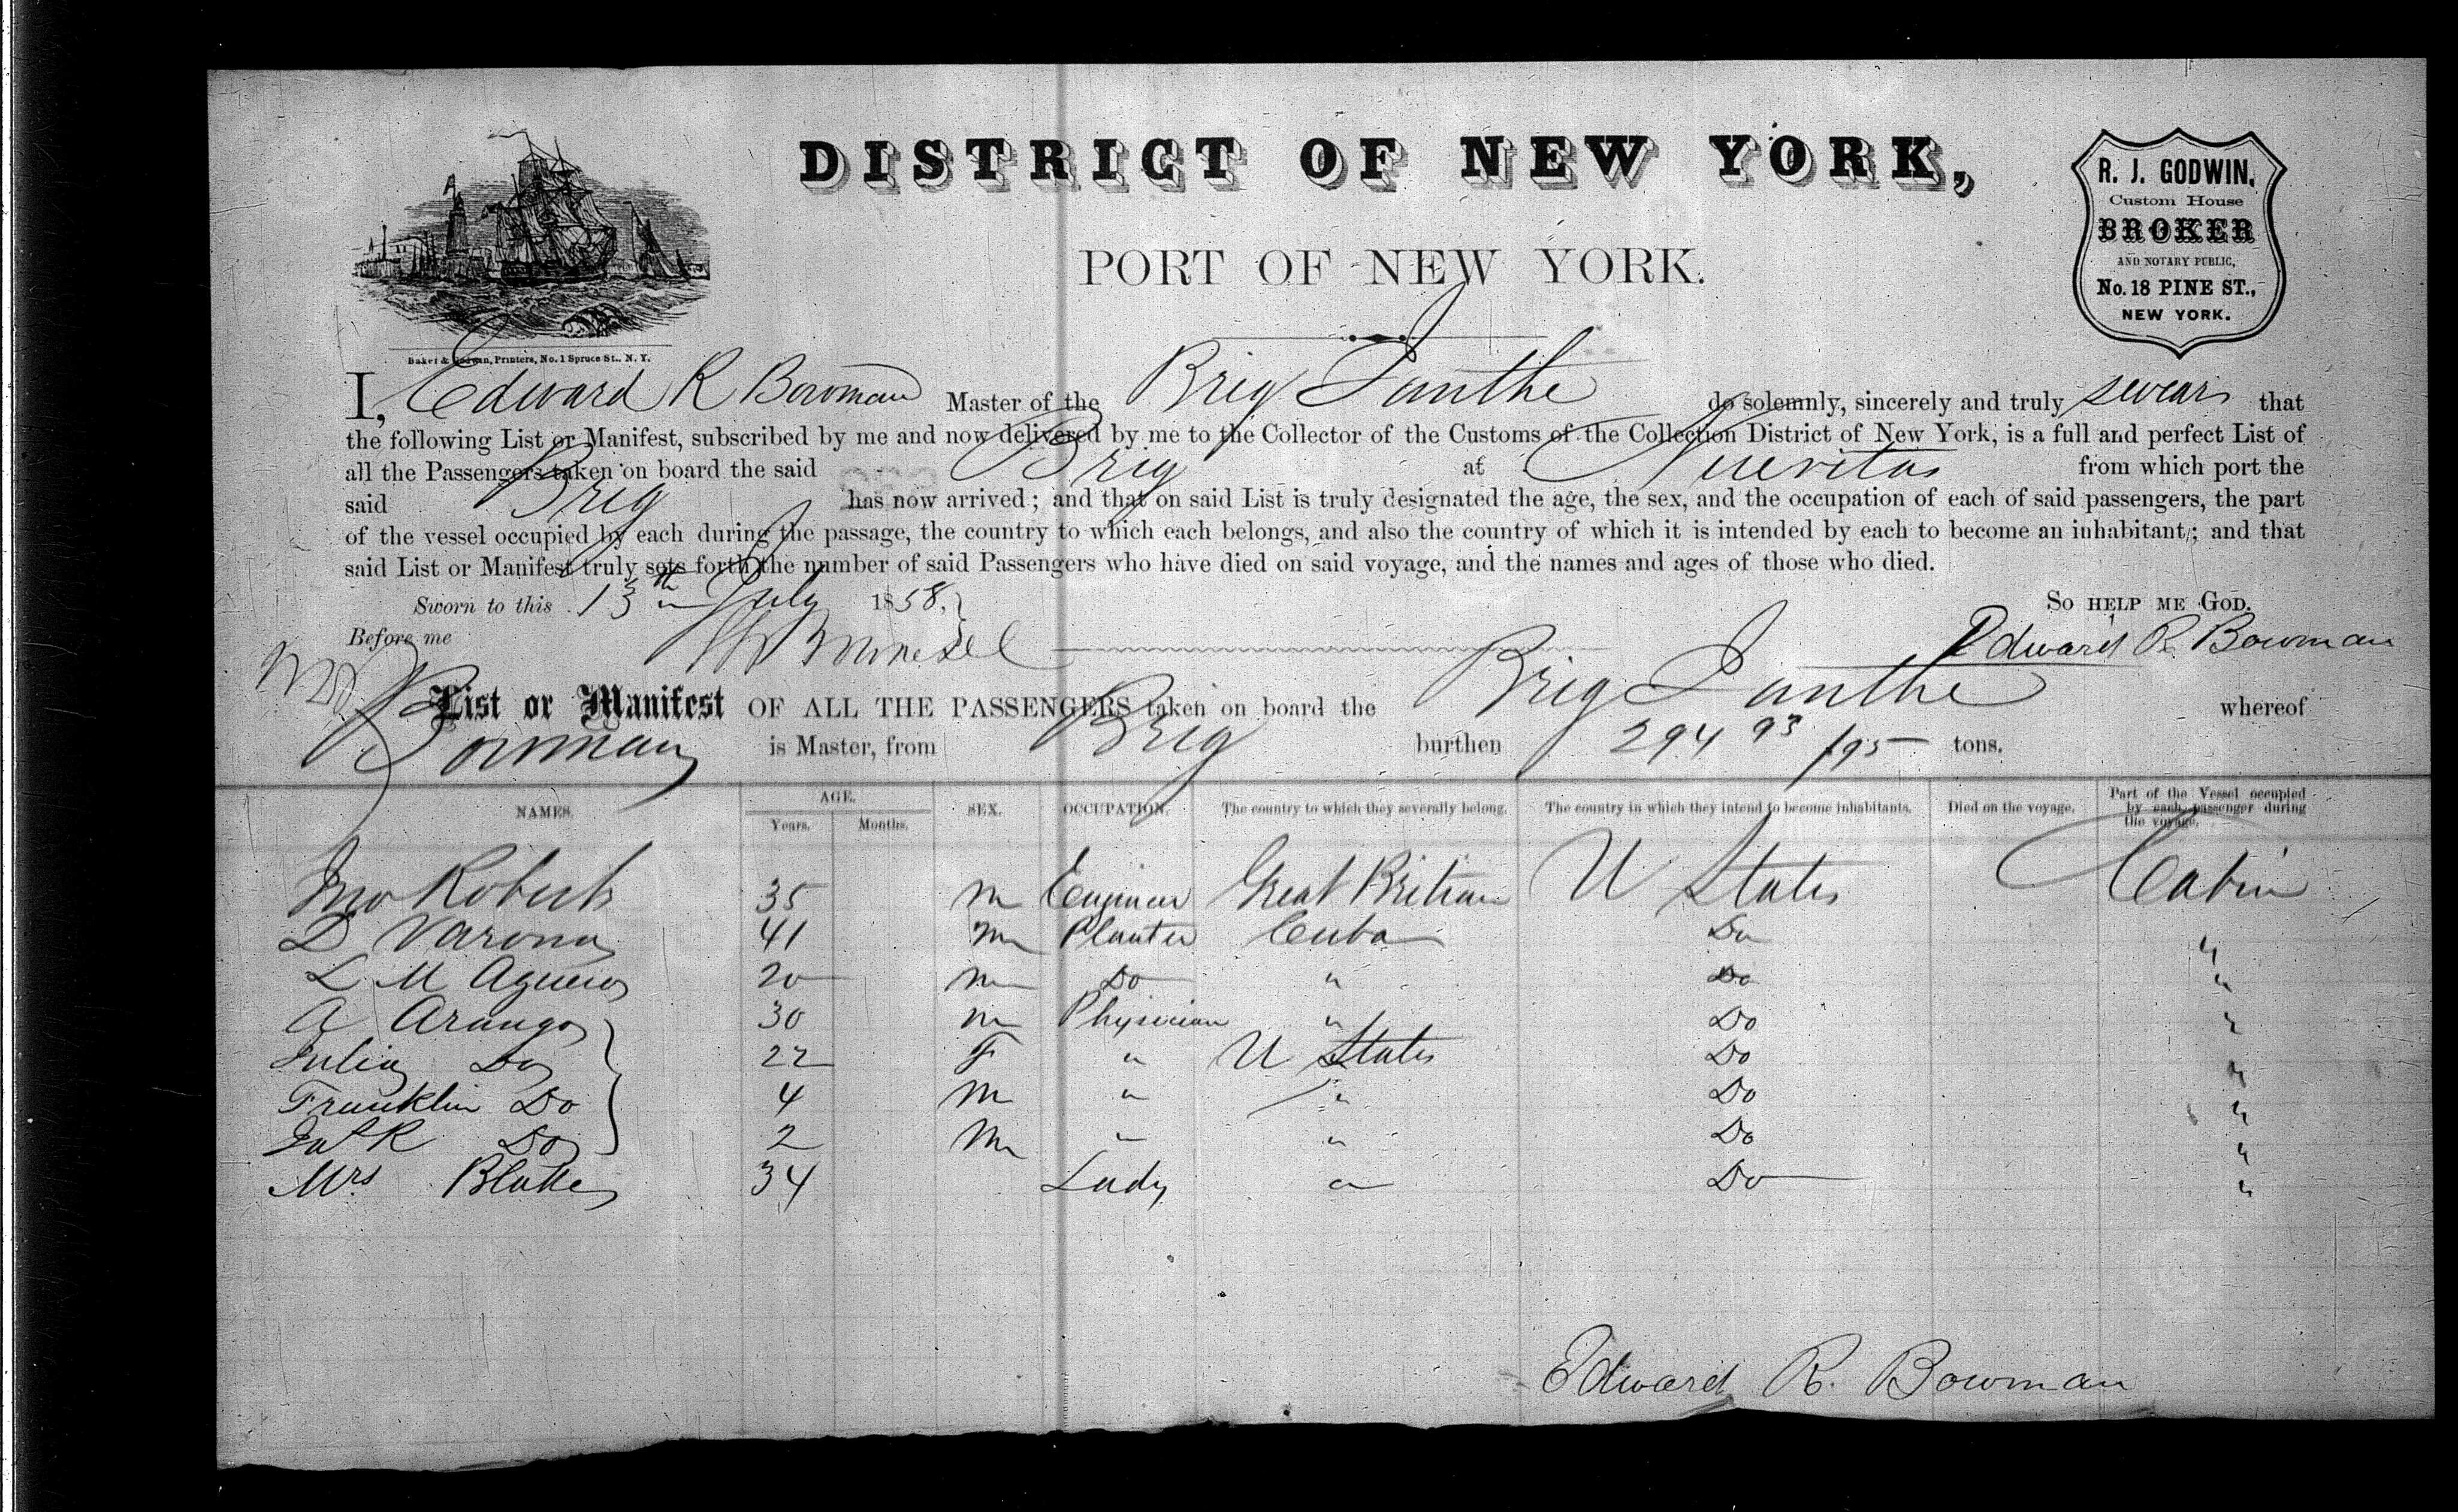 DISTRICT OF NEW YORK,
PORT OF NEW YORK.
R. J. GODWIN,
Custom House
BROKER
AND NOTARY PUBLIC,
No. 18 PINE ST.,
NEW YORK.
Baker & Godwin, Printers, No. 1 Spruce St., N. Y.
I, Edward R Bowman Master of the Brig Ianthe do solemnly, sincerely and truly swear that
the following List or Manifest, subscribed by me and now delivered by me to the Collector of the Customs of the Collection District of New York, is a full and perfect List of
all the Passengers taken on board the said Brig at Nuevitas from which port the
said Brig has now arrived; and that on said List is truly designated the age, the sex, and the occupation of each of said passengers, the part
of the vessel occupied by each during the passage, the country to which each belongs, and also the country of which it is intended by each to become an inhabitant; and that
said List or Manifest truly sets forth the number of said Passengers who have died on said voyage, and the names and ages of those who died.
Sworn to this 13th July 1858. So HELP ME GOD.
Before me Edward R. Bowman
List or Manifest OF ALL THE PASSENGERS taken on board the Brig Ianthe whereof
Bowman is Master, from Brig burthen 294 93/95 tons.
NAMES. AGE. Years. Months. SEX. OCCUPATION. The country to which they severally belong. The country in which they intend to become inhabitants. Died on the voyage. Part of the Vessel occupied by each passenger during the voyage.
Jno Roberts 35 M Engineer Great Britian U States Cabin
D Varona 41 M Planter Cuba Do "
L M Aguero 20 M Do " Do "
A Arango 30 M Physician " Do "
Julia Do 22 F " U States Do "
Franklin Do 4 M " " Do "
R Do 2 M " " Do "
Mrs Blake 34 Lady " Do "
Edward R. Bowman